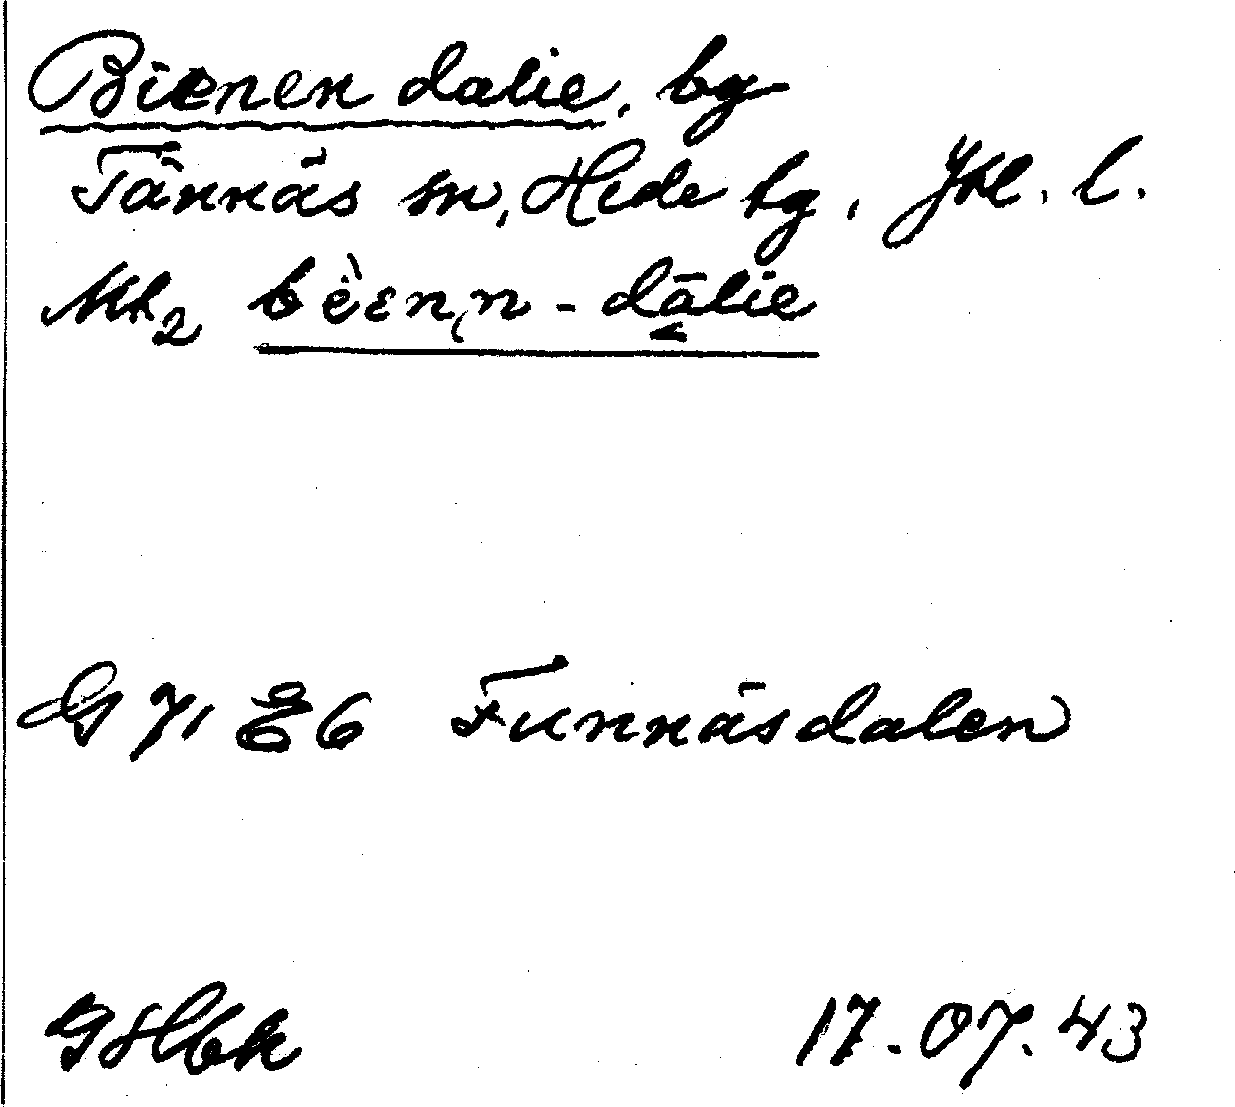 Bienen dalie, bg
Tännäs sn, Hede tg, Jtl. l.
Mt2 bèenn - dālie
G 71 E6 Funnäsdalen
Gslbk 17.07.43